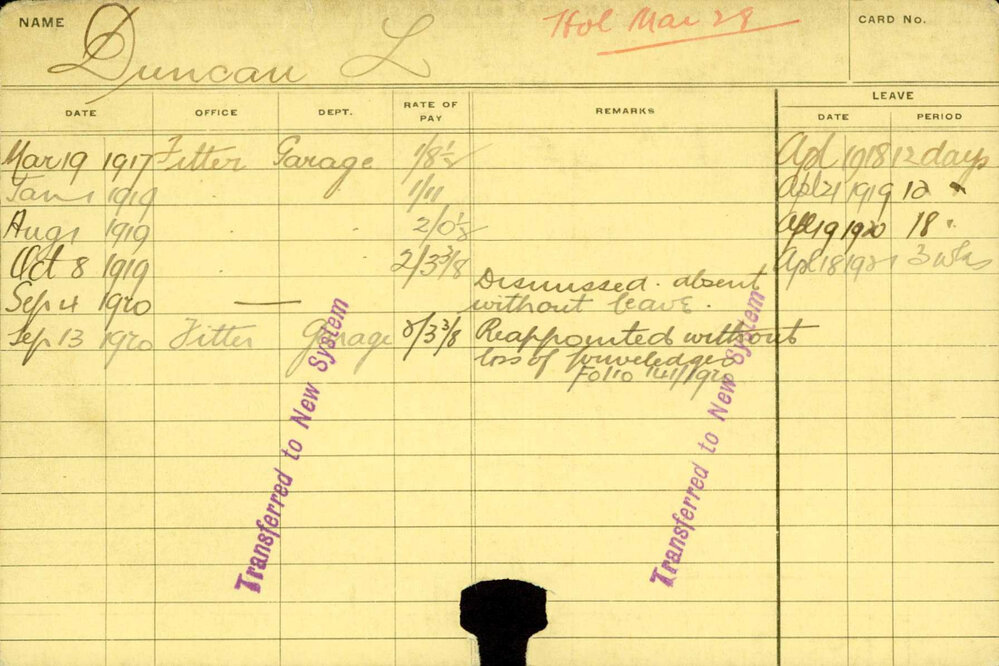 NAME Duncan L Hol Mar 28 CARD No.
LEAVE
DATE OFFICE DEPT. RATE OF PAY REMARKS DATE PERIOD
Mar 19 1917 Fitter Garage 1/8½ Apl 1918 12 days
Jan 1 1919 1/11 Apl 21 1919 12 "
Aug 1 1919 . . 2/0½ Apl 19 1920 18 "
Oct 8 1919 2/3⅜ Apl 18 1921 3 wks
Sep 4 1920 — Dismissed. absent
without leave.
Sep 13 1920 Fitter Garage 2/3⅜ Reappointed without
loss of priveledges
Folio 141/1920
Transferred to New System
Transferred to New System